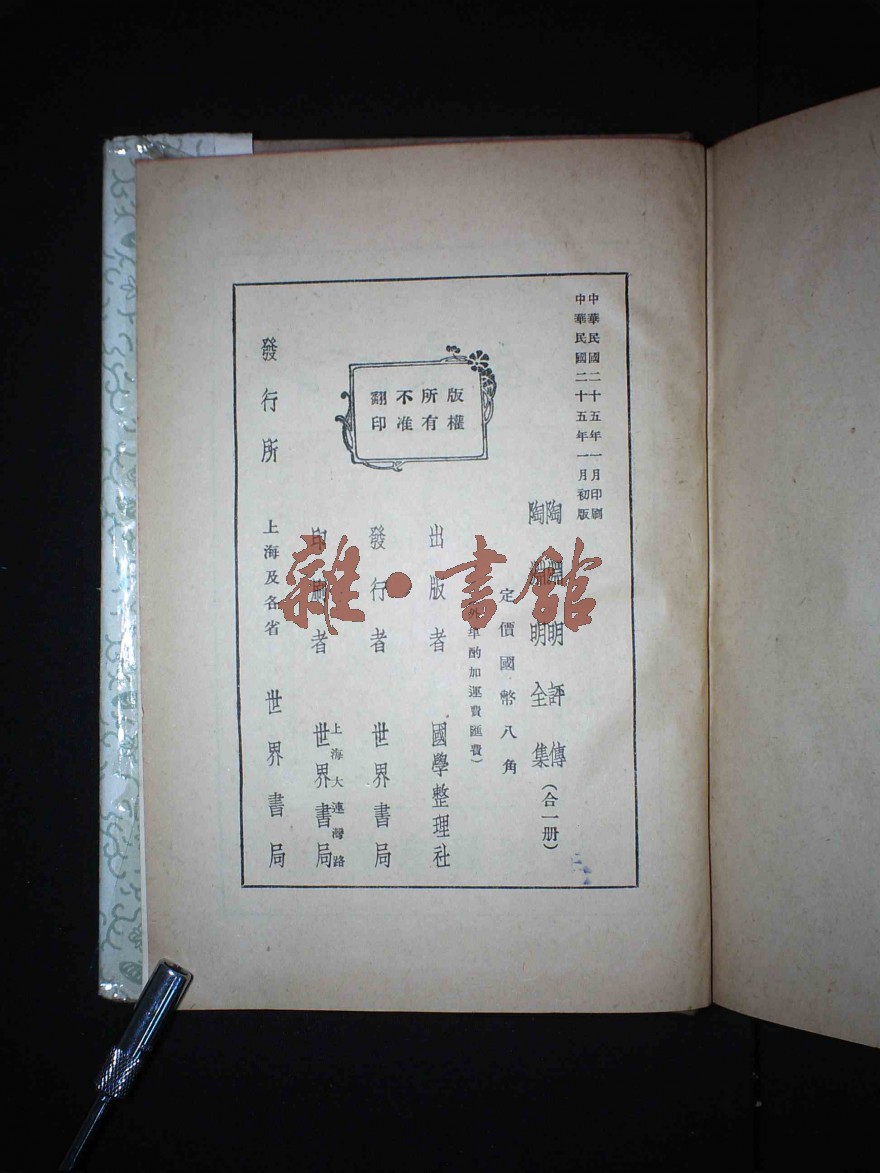 中華民國二十五年一月印刷
中華民國二十五年一月初版
陶淵明評傳
陶淵明全集
(合一册)
定價國幣八角
埠酌加運費匯費)
版權
所有
不准
翻印
出版者 國學整理社
發行者 世界書局
上海大連灣路
印刷者 世界書局
發行所 上海及各省 世界書局
雜·書館